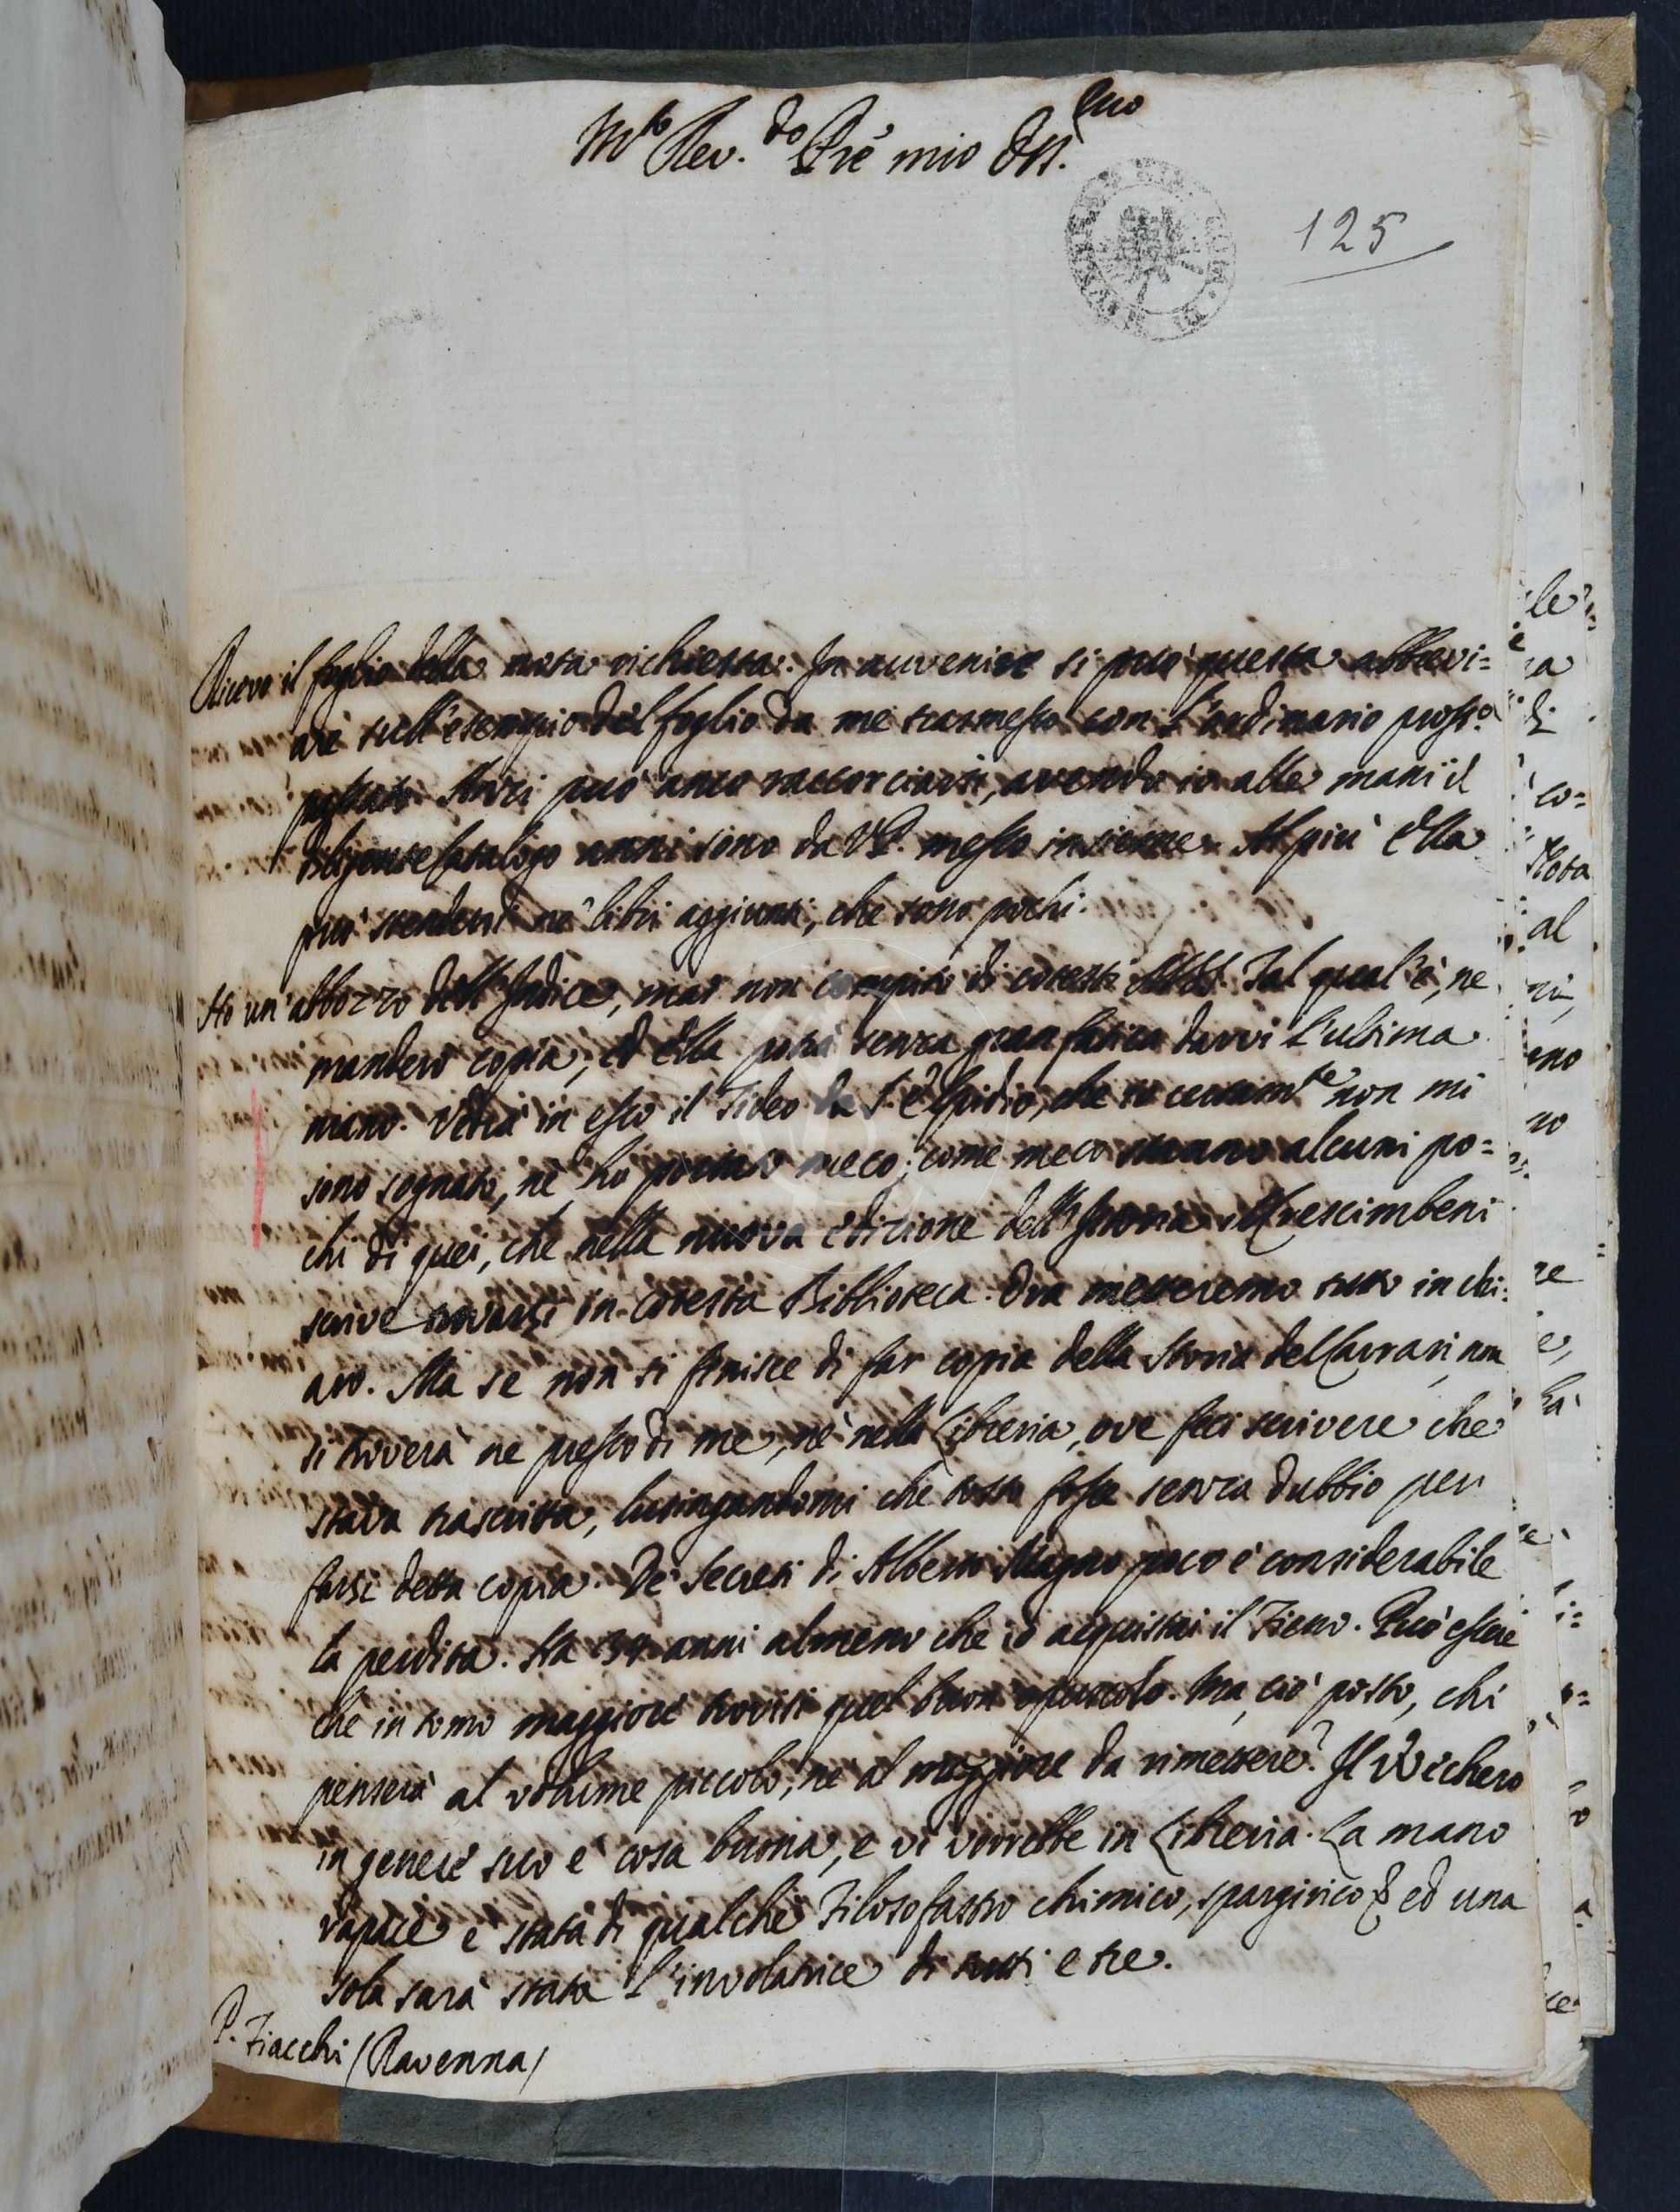 M.to Rev.do Pre mio Oss.mo
125
Ricevo il foglio della nota richiesta. In avvenire si può questa abbrevi=
are sull'esempio del foglio da me trasmesso con l'ordinario pross.o
passato. Anzi può anco raccorciarsi, avendo io alle mani il
diligente Catalogo anni sono da VP. messo insieme. Al più Ella
può stendersi ne' libri aggiunti, che sono pochi.
Ho un'abbozzo dell'Indice, mas non compito di cotesti MSS. Tal qual'è, ne
manderò copia, ed Ella potrà senza gran fatica darvi l'ultima
mano. Vedrà in esso il Fideo da S. Elpidio, che io certam.te non mi
sono sognato, nè ho portato meco; come meco stanno alcuni po=
chi di quei, che nella nuova edizione dell'Istoria il Crescimbeni
scrive trovarsi in cotesta Biblioteca. Ora metteremo tutto in chi=
aro. Ma se non si finisce di far copia della Storia del Carrari, non
si troverà ne presso di me, nè nella Libreria, ove feci scrivere che
stava trascritta, lusingandomi che tosto fosse senza dubbio per
farsi detta copia. De' Secreti di Alberto Magno poco è considerabile
la perdita. Ha 34 anni almeno che io acquistai il Fieno. Può essere
che in tomo maggiore trovisi quel buon opuscolo. Ma, ciò posto, chi
penserà al volume piccolo, ne al maggiore da rimettere? Il Wechero
in genere suo è cosa buona, e vi vorrebbe in Libreria. La mano
rapace è stata di qualche Filosofastro chimico, spargirico & ed una
sola sarà stata l'involatrice di tutti e tre.
P. Fiacchi (Ravenna)